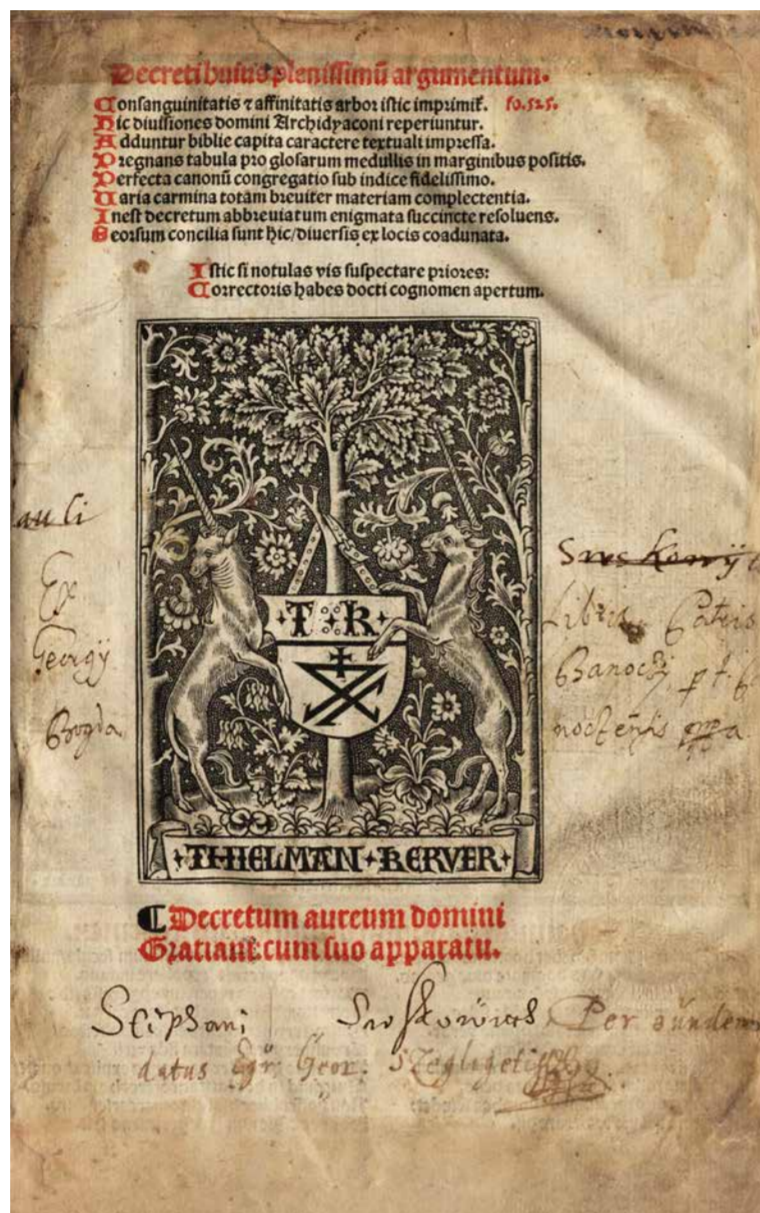 Decreti huius plenissimū argumentum.
Consanguinitatis ⁊ affinitatis arbor istic imprimit̄. fo.525.
Hic diuisiones domini Archidyaconi reperiuntur.
Adduntur biblie capita caractere textuali impressa.
Pregnans tabula pro glosarum medullis in marginibus positis.
Perfecta canonū congregatio sub indice fidelissimo.
Uaria carmina totam breuiter materiam complectentia.
Inest decretum abbreuiatum enigmata succincte resoluens.
Seorsum concilia sunt hic/diuersis ex locis coadunata.
Istic si notulas vis suspectare priores:
Correctoris habes docti cognomen apertum.
Ex
Libris
Georgÿ
Bogda
T R
THIELMAN KERVER
Decretum aureum domini
Gratiani: cum suo apparatu.
Stephani Per eündem
datus Egr. Geor.